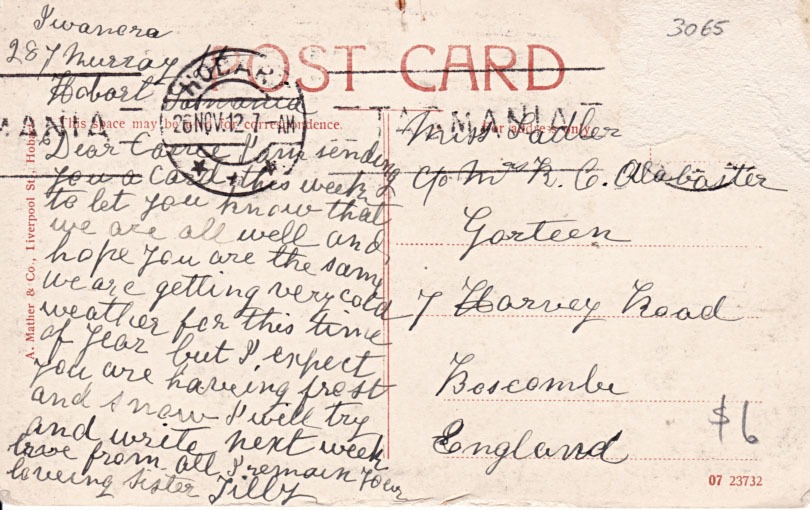 3065
Iwanera
287 Murray St
POST CARD
Hobart Tasmania
HOBART
26 NOV.12 7 - AM
TASMANIA
This space may be for correspondence.
For address only.
Dear Carrie I am sending
you a card this week
to let you know that
we are all well and
hope you are the same
we are getting very cold
weather for this time
of year but I expect
you are haveing frost
and snow I will try
and write next week
love from all I remain your
loveing sister Tilly
Miss Sadler
c/o Mrs R. C. Alabaster
Gorteen
7 Harvey Road
Boscombe
England
$6
07 23732
A. Mather & Co., Liverpool St., Hobart